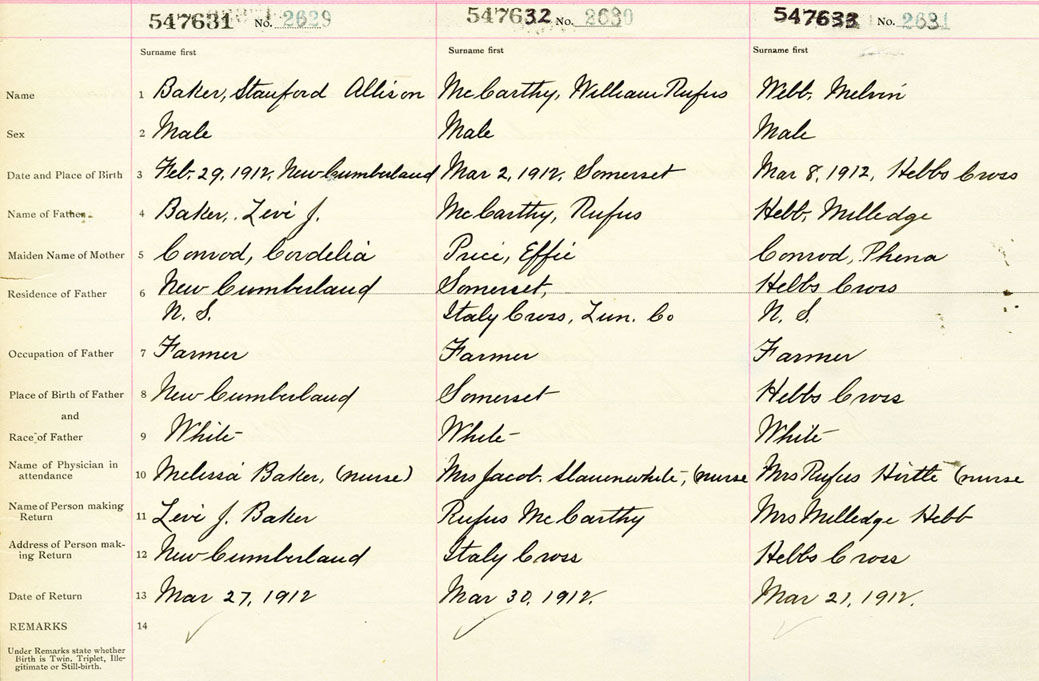 547631 No. 2629 547632 No. 2630 547633 No. 2631
Surname first Surname first Surname first
Name 1 Baker, Stanford Allison McCarthy, William Rufus Webb, Melvin
Sex 2 Male Male Male
Date and Place of Birth 3 Feb. 29, 1912, New Cumberland Mar 2, 1912, Somerset Mar 8, 1912, Hebbs Cross
Name of Father 4 Baker, Levi J. McCarthy, Rufus Hebb, Milledge
Maiden Name of Mother 5 Conrod, Cordelia Price, Effie Conrod, Phena
Residence of Father 6 New Cumberland Somerset, Hebbs Cross
N. S. Italy Cross, Lun. Co N. S.
Occupation of Father 7 Farmer Farmer Farmer
Place of Birth of Father 8 New Cumberland Somerset Hebbs Cross
and
Race of Father 9 White White White
Name of Physician in attendance 10 Melissa Baker, (nurse) Mrs Jacob Slauenwhite, (nurse Mrs Rufus Hirtle (nurse
Name of Person making Return 11 Levi J. Baker Rufus McCarthy Mrs Milledge Hebb
Address of Person mak-
ing Return 12 New Cumberland Italy Cross Hebbs Cross
Date of Return 13 Mar 27, 1912 Mar 30, 1912. Mar 21, 1912.
REMARKS 14
Under Remarks state whether
Birth is Twin, Triplet, Ille-
gitimate or Still-birth.